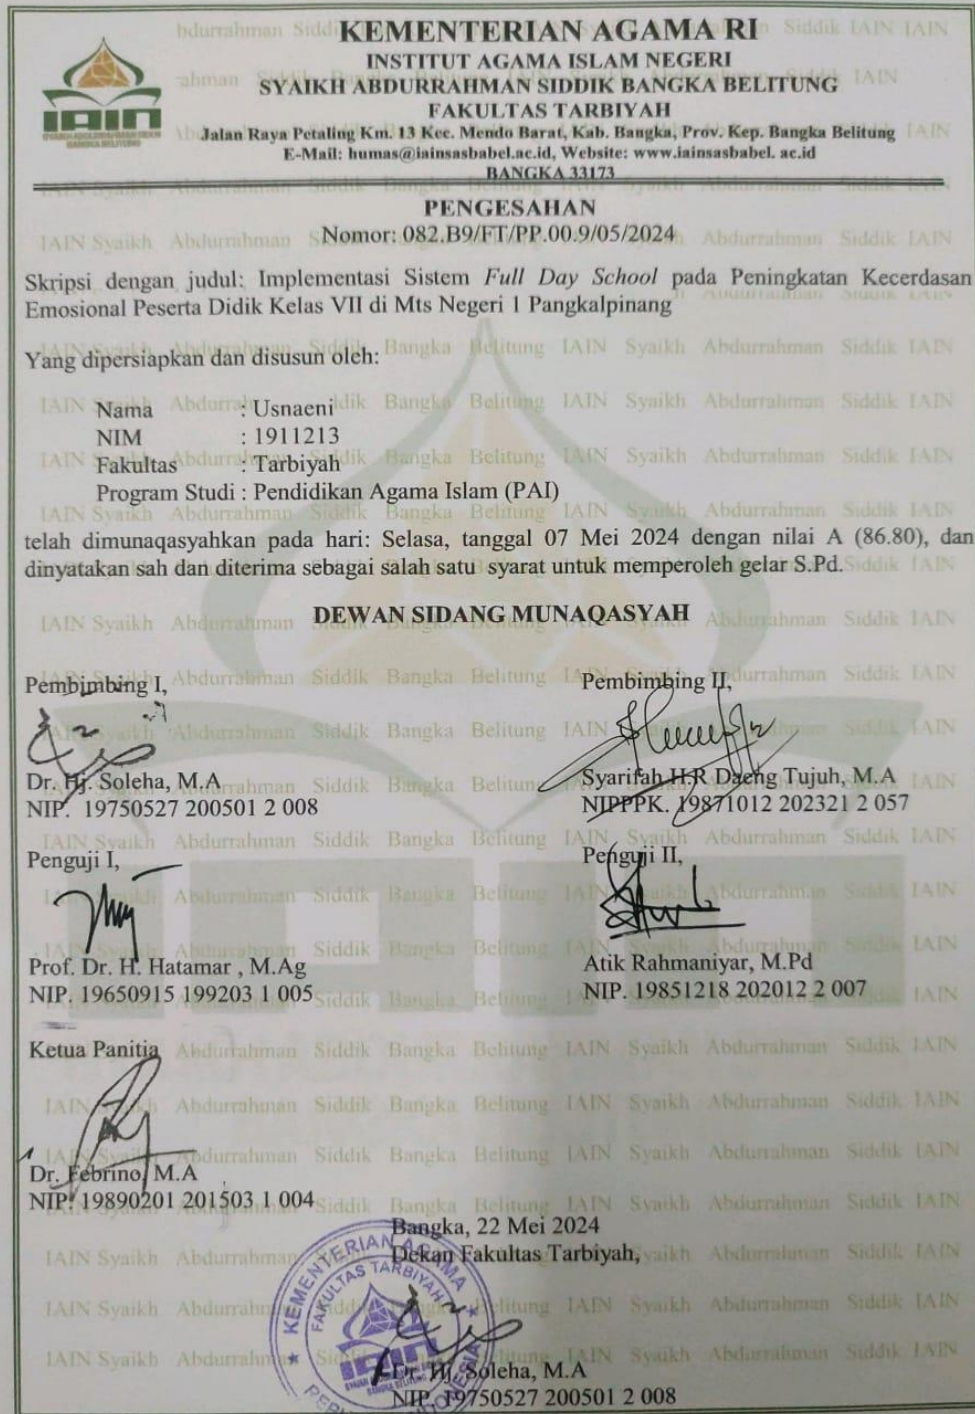 KEMENTERIAN AGAMA RI
INSTITUT AGAMA ISLAM NEGERI
SYAIKH ABDURRAHMAN SIDDIK BANGKA BELITUNG
FAKULTAS TARBIYAH
Jalan Raya Petaling Km. 13 Kec. Mendo Barat, Kab. Bangka, Prov. Kep. Bangka Belitung
E-Mail: humas@iainsasbabel.ac.id, Website: www.iainsasbabel. ac.id
BANGKA 33173
IAIN
SYAIKH ABDURRAHMAN SIDDIK
BANGKA BELITUNG
PENGESAHAN
Nomor: 082.B9/FT/PP.00.9/05/2024
Skripsi dengan judul: Implementasi Sistem Full Day School pada Peningkatan Kecerdasan
Emosional Peserta Didik Kelas VII di Mts Negeri 1 Pangkalpinang
Yang dipersiapkan dan disusun oleh:
Nama : Usnaeni
NIM : 1911213
Fakultas : Tarbiyah
Program Studi : Pendidikan Agama Islam (PAI)
telah dimunaqasyahkan pada hari: Selasa, tanggal 07 Mei 2024 dengan nilai A (86.80), dan
dinyatakan sah dan diterima sebagai salah satu syarat untuk memperoleh gelar S.Pd.
DEWAN SIDANG MUNAQASYAH
Pembimbing I,
Dr. Hj. Soleha, M.A
NIP. 19750527 200501 2 008
Pembimbing II,
Syarifah H.R Daeng Tujuh, M.A
NIPPPK. 19871012 202321 2 057
Penguji I,
Prof. Dr. H. Hatamar , M.Ag
NIP. 19650915 199203 1 005
Penguji II,
Atik Rahmaniyar, M.Pd
NIP. 19851218 202012 2 007
Ketua Panitia
Dr. Febrino, M.A
NIP. 19890201 201503 1 004
Bangka, 22 Mei 2024
Dekan Fakultas Tarbiyah,
KEMENTERIAN AGAMA
FAKULTAS TARBIYAH
IAIN
Dr. Hj. Soleha, M.A
NIP. 19750527 200501 2 008